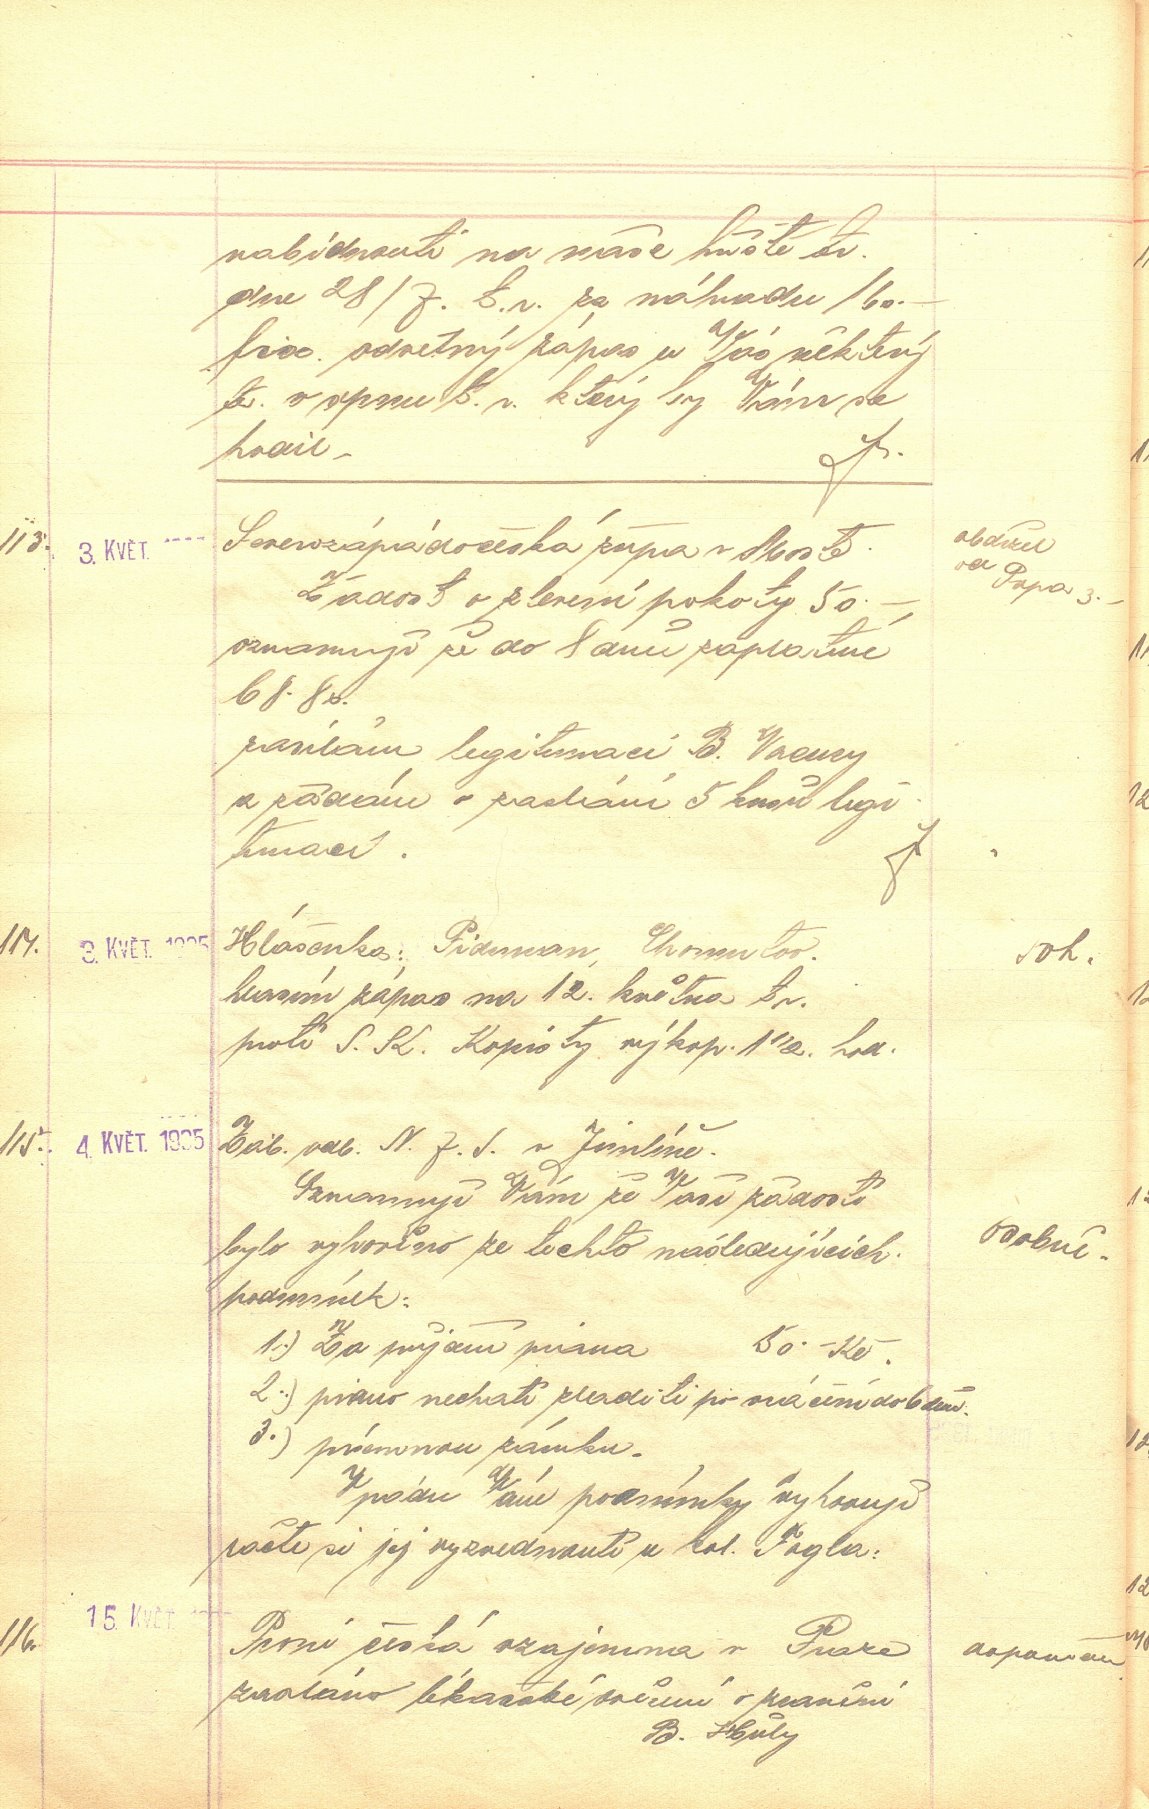 nabídnouti na naše hřiště tr.
dne 28/7. t.r. za náhradu 160.-
fix. odvetný zápas u Vás některý
v srpnu t.r. který by Vám se
hodil -
113. 3. KVĚT. Severozápadočeská župa v Mostě.
obdržel
od Popa 3.-
Žádost o slevení pokuty 50.-,
oznamuji že do 8 dnů zaplatíme
68.80.
zasílám legitimaci B. Vacury
a žádám o zaslání 5 kusů legi
timací.
114. 3. KVĚT. 1935 Hlášenka: Pidrman, Chomutov.
hlasím zápas na 12. května t.r.
proti S.K. Kopisty výkop. 1 1/2. hod.
115. 4. KVĚT. 1935 Záb. odb. N.J.S. v Jimlíně.
Oznamuji Vám že Vaší žádosti
bylo vyhověno ze těchto následujících
osobně.
podmínek:
1.) Za půjčení piana 50.- Kč.
2.) piano nechati sladiti po vrácení do 6 dnů.
3.) písemnou záruku.
V pádu Vám podmínky vyhovují
račte si jej vyzvednouti u kol. Fogla:
116. 15. KVĚT. První česká vzájemná v Praze
zasláno lékařské svěčení o zranění
B. Hůly